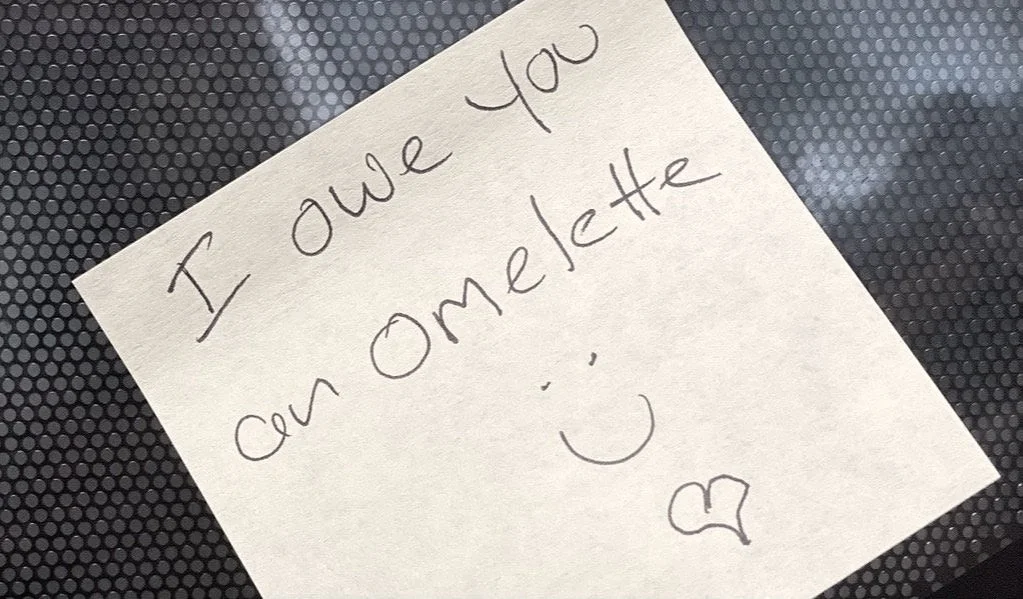 I owe you
an omelette